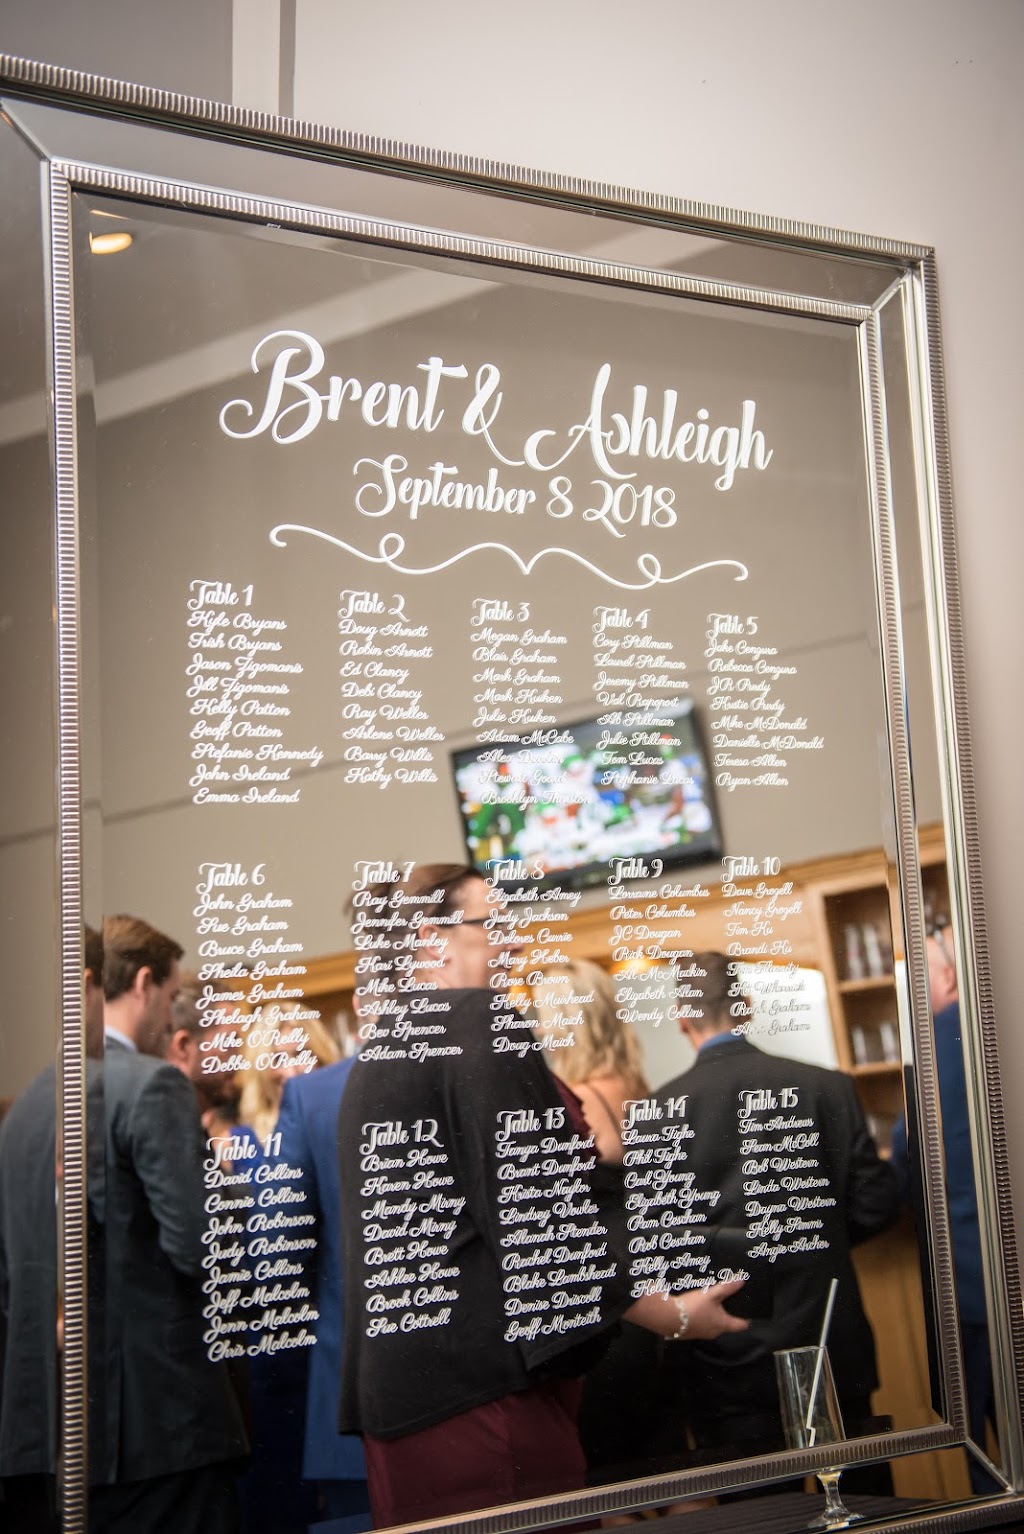 Brent & Ashleigh
September 8 2018
Table 1
Kyle Bryans
Trish Bryans
Jason Zigomanis
Jill Zigomanis
Kelly Patton
Geoff Patton
Stefanie Kennedy
John Ireland
Emma Ireland
Table 2
Doug Arnott
Robin Arnott
Ed Clancy
Debi Clancy
Ray Weller
Arlene Weller
Barry Wills
Kathy Wills
Table 3
Megan Graham
Blair Graham
Mark Graham
Mark Kuiken
Julie Kuiken
Adam McCabe
Alex
Stewart
Brooklyn Thurston
Table 4
Cory Stillman
Laurel Stillman
Jeremy Stillman
Val Rapoport
Ab Stillman
Julie Stillman
Tom Lucas
Stephanie Lucas
Table 5
Jake Cenzura
Rebecca Cenzura
JR Prudy
Kristin Prudy
Mike McDonald
Danielle McDonald
Teresa Allen
Ryan Allen
Table 6
John Graham
Sue Graham
Bruce Graham
Sheila Graham
James Graham
Shelagh Graham
Mike O'Reilly
Debbie O'Reilly
Table 7
Ray Gemmill
Jennifer Gemmill
Luke Manley
Kari Lywood
Mike Lucas
Ashley Lucas
Bev Spencer
Adam Spencer
Table 8
Elizabeth Amey
Judy Jackson
Delores Currie
Mary Heber
Rose Brown
Kelly Muirhead
Sharon Maich
Doug Maich
Table 9
Lorraine Columbus
Peter Columbus
JC Dougan
Rick Dougan
Al McMackin
Elizabeth Alan
Wendy Collins
Table 10
Dave Grozell
Nancy Grozell
Tim Hu
Brandi Hu
Graham
Graham
Table 11
David Collins
Connie Collins
John Robinson
Judy Robinson
Jamie Collins
Jeff Malcolm
Jenn Malcolm
Chris Malcolm
Table 12
Brian Howe
Karen Howe
Mandy Mirny
David Mirny
Brett Howe
Ashlee Howe
Brook Collins
Sue Cottrell
Table 13
Tanya Dumford
Brant Dumford
Krista Naylor
Lindsey Vowles
Alanah Stender
Rachel Dumford
Blake Lambshead
Denise Driscoll
Geoff Monteith
Table 14
Laura Tighe
Phil Tighe
Carl Young
Elizabeth Young
Pam Coschan
Rob Coschan
Kelly Amey
Kelly Amey's Date
Table 15
Tim Andrews
Sean McColl
Bob Western
Linda Western
Dayna Western
Kelly Simms
Angie Archer